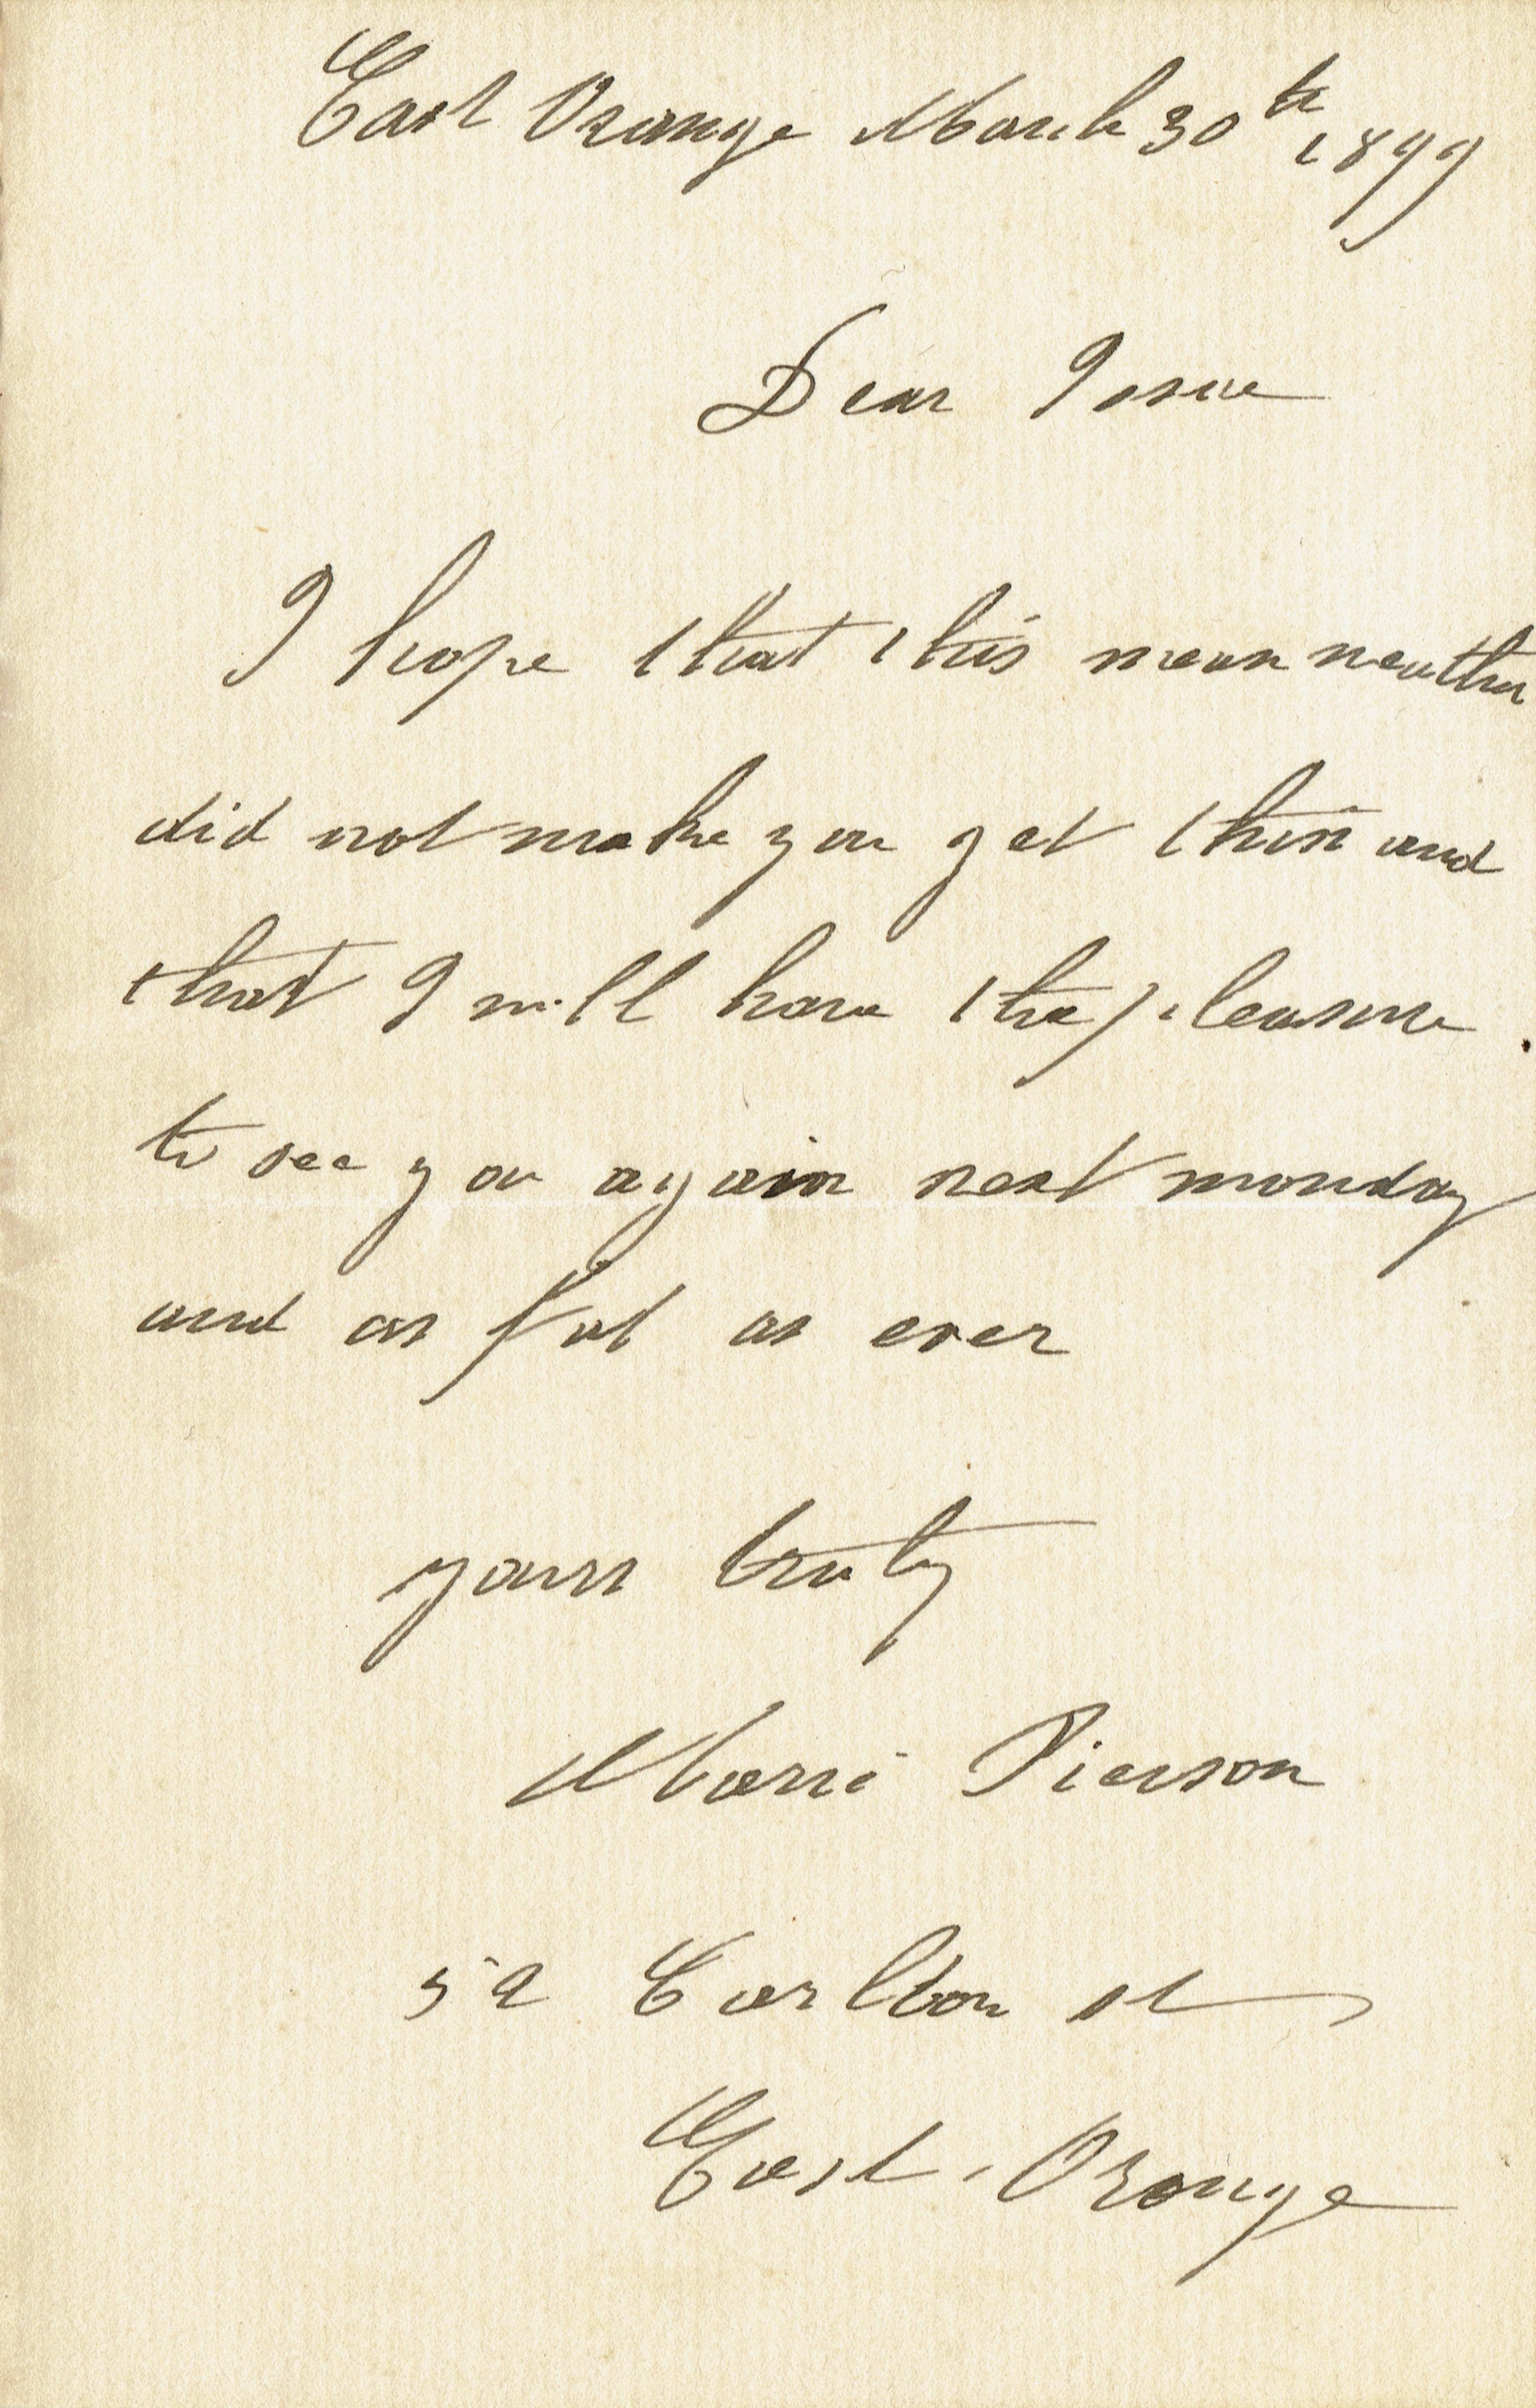 East Orange March 30th 1899
Dear
I hope that this mean weather
did not make you get thin and
that I will have the pleasure
to see you again next monday
and as fat as ever
yours truly
Marie Pierson
52 Carlton st
East Orange